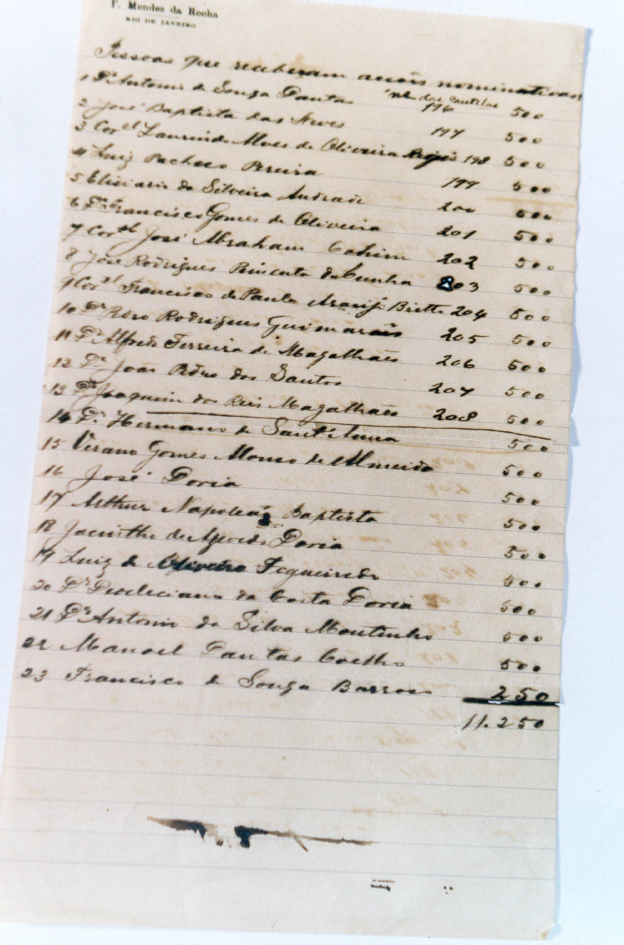 F. Mendes da Rocha
RIO DE JANEIRO
Pessoas que receberam acções nominativas
nº das cautelas
1 Dr Antonio de Souza Dantas 196 500
2 José Baptista das Neves 197 500
3 Corel Laurindo Alves de Oliveira Regis 198 500
4 Luiz Pacheco Pereira 199 500
5 Elisiario da Silveira Andrade 200 500
6 Dr Francisco Gomes de Oliveira 201 500
7 José Abraham Cohim 202 500
8 José Rodrigues da Cunha 203 500
9 Corel Francisco de Paula Araujo Britto 204 500
10 Dr Pedro Rodrigues Guimarães 205 500
11 Dr Alfredo Ferreira de Magalhães 206 500
12 Dr João Pedro dos Santos 207 500
13 Dr Joaquim dos Reis Magalhães 208 500
14 Dr Hermano de Sant'Anna 500
15 Gomes de Almeida 500
16 José Doria 500
17 Arthur Napoleão Baptista 500
18 Jacintho de Azevedo Doria 500
19 Luiz de Oliveira Figueiredo 500
20 Dr Deocleciano da Costa Doria 500
21 Dr Antonio da Silva Moutinho 500
22 Manoel Dantas Coelho 500
23 Francisco de Souza Barros 250
11.250